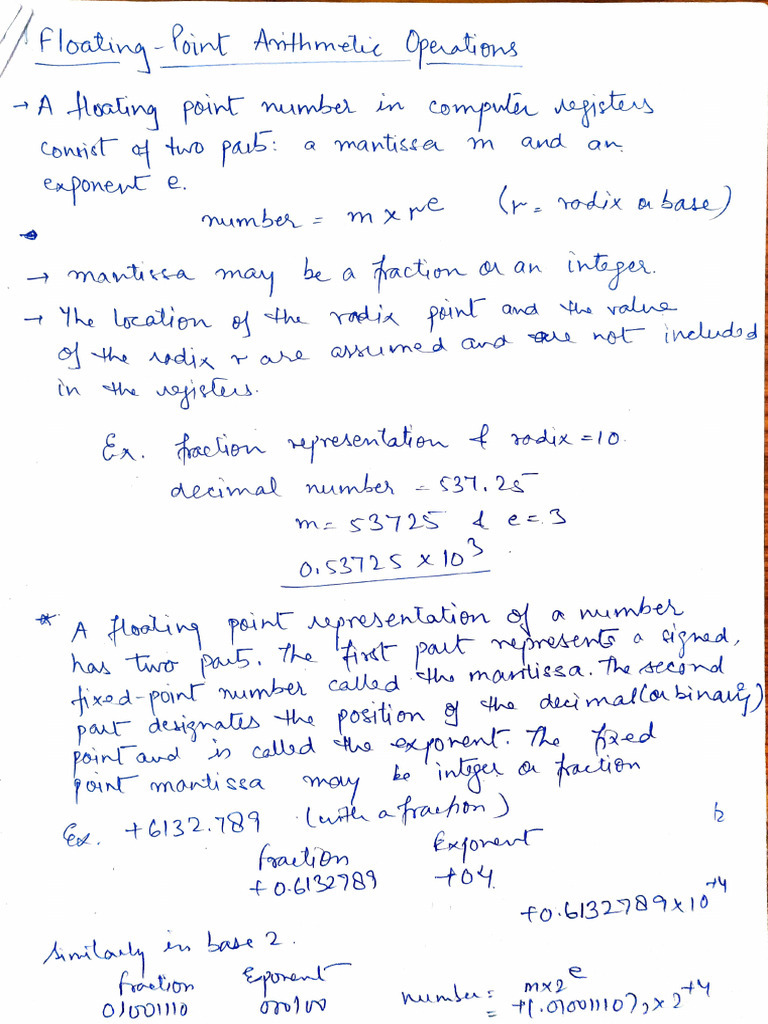 Floating-Point Arithmetic Operations
→ A floating point number in computer registers
consist of two parts: a mantissa m and an
exponent e.
number = m x r^e (r = radix or base)
→ mantissa may be a fraction or an integer.
→ The location of the radix point and the value
of the radix r are assumed and are not included
in the registers.
Ex. fraction representation & radix = 10.
decimal number = 537.25
m = 53725 & e = 3
0.53725 x 10^3
* A floating point representation of a number
has two parts. The first part represents a signed,
fixed-point number called the mantissa. The second
part designates the position of the decimal (or binary)
point and is called the exponent. The fixed
point mantissa may be integer or fraction
Ex. +6132.789 (with a fraction)
fraction Exponent
+0.6132789 +04
+0.6132789 x 10^+4
Similarly in base 2.
fraction Eponent
01001110 000100
number = m x 2^e
= +(.01001110)₂ x 2^+4